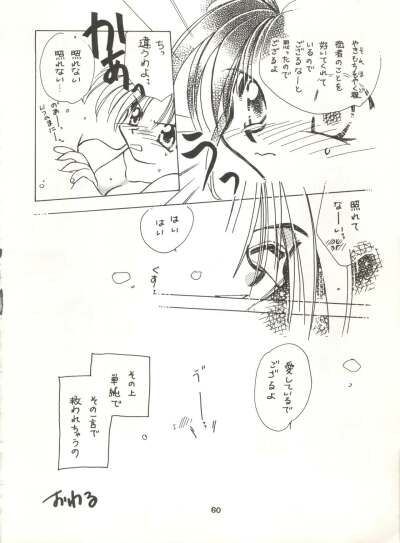 そんなに
やきもちもやく程
拙者のことを
好いてくれて
いるので
ござるなーと
思ったので
ござるよ
かあっ
ちっ
違うわよっ
照れない
照れない…
のあ
いつのまに…
うっ
照れて
なーいっ
はい
はい
くす
愛しているで
ござるよ
う゛ー
その上
単純で
その一言で
救われちゃうの
おわる
60